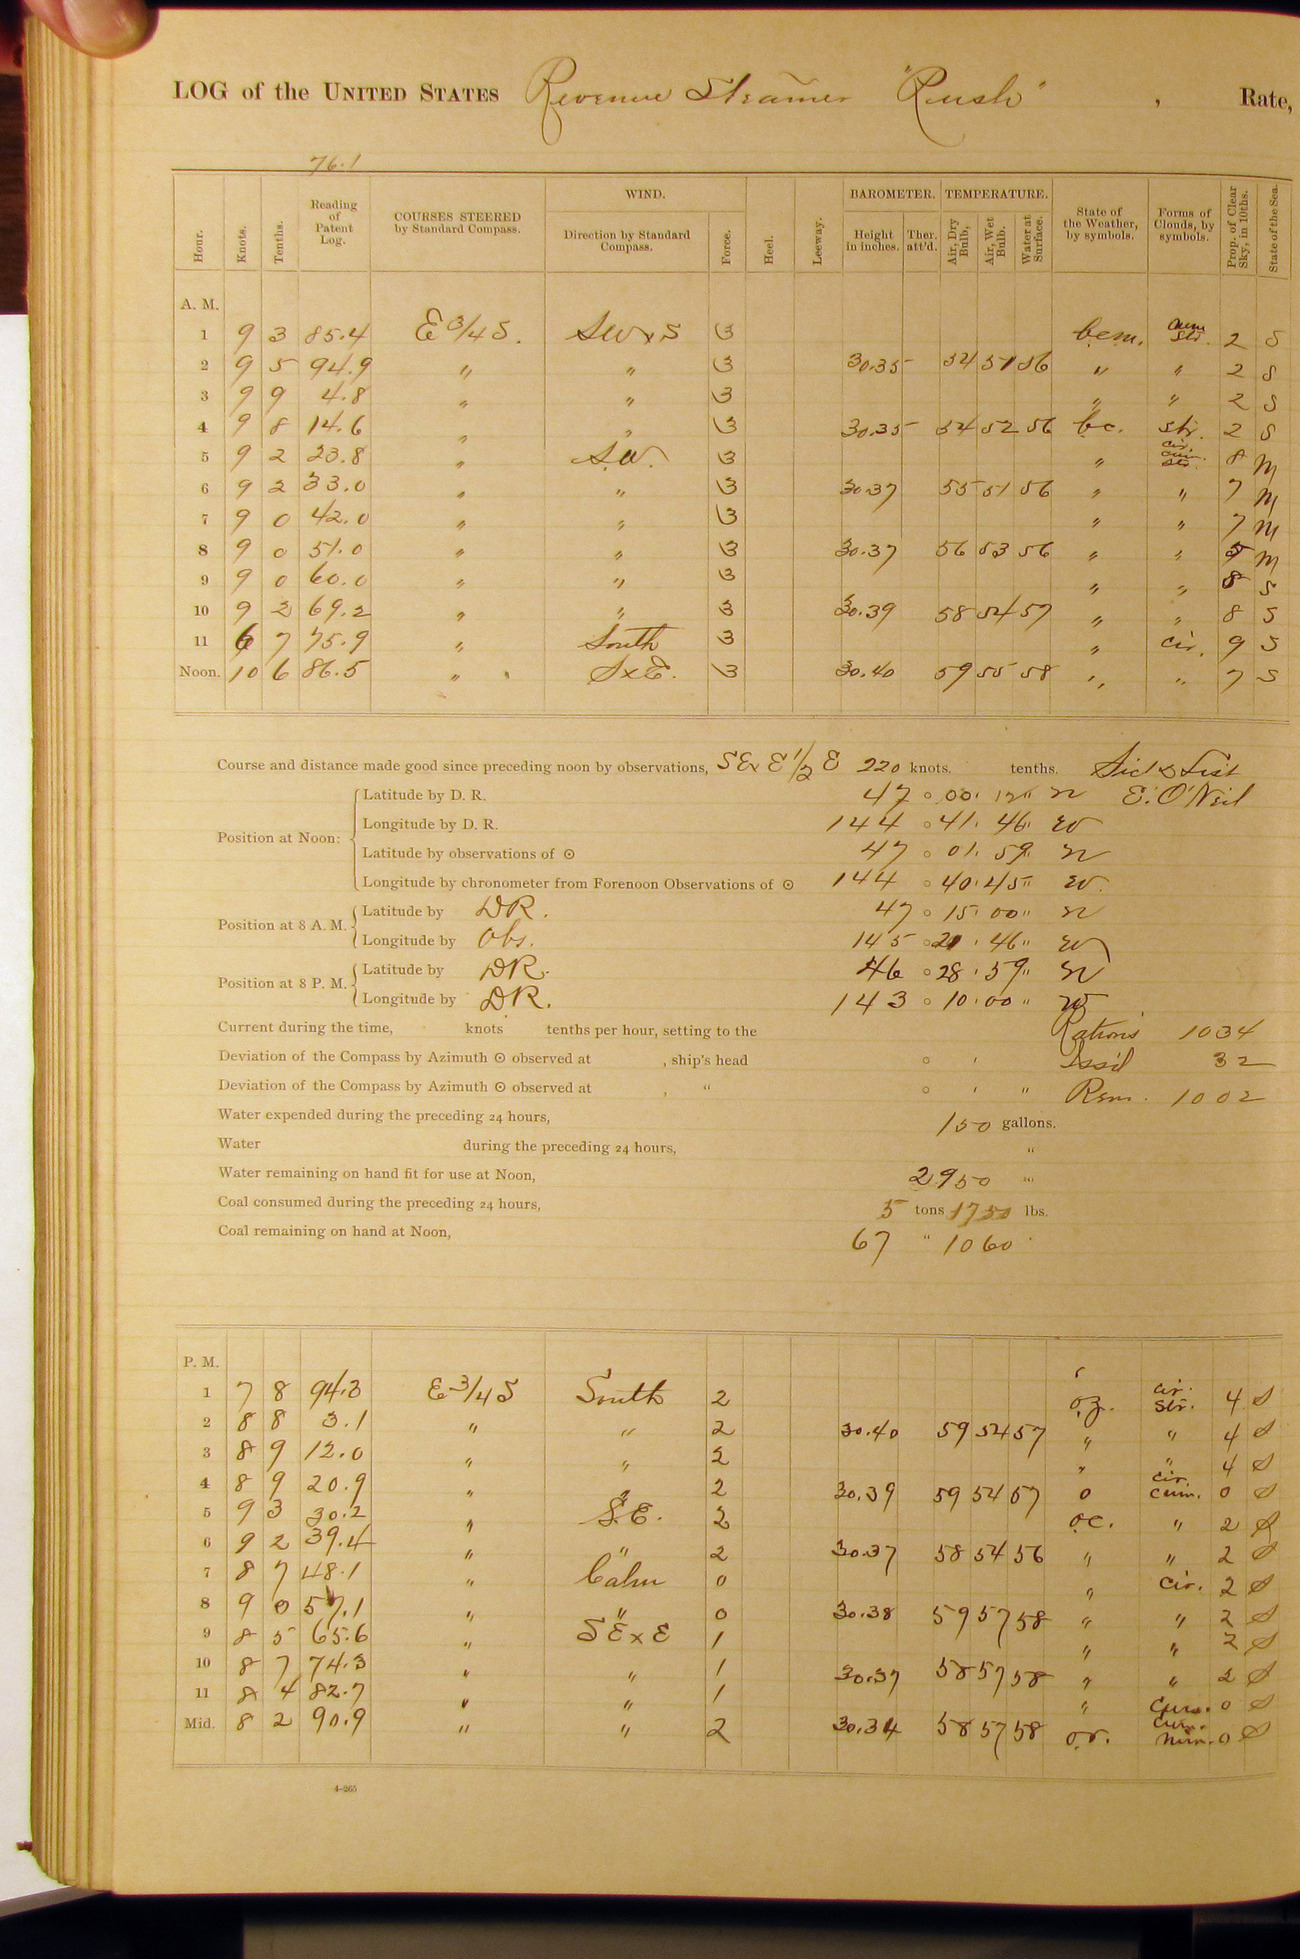 LOG of the UNITED STATES Revenue Steamer "Rush" , Rate,
76.1
Hour. Knots. Tenths. Reading of Patent Log. COURSES STEERED by Standard Compass. WIND. Direction by Standard Compass. Force. Heel. Leeway. BAROMETER. Height in inches. Ther. att'd. TEMPERATURE. Air, Dry Bulb, Air, Wet Bulb. Water at Surface. State of the Weather, by symbols. Forms of Clouds, by symbols. Prop. of Clear Sky, in 10ths. State of the Sea.
A. M.
1 9 3 85.4 E 3/4 S. SW x S 3 bcm. Cum Str. 2 S
2 9 5 94.9 " " 3 30.35 54 51 56 " " 2 S
3 9 9 4.8 " " 3 " " 2 S
4 9 8 14.6 " " 3 30.35 54 52 56 bc. Str. 2 S
5 9 2 23.8 " SW. 3 " Cir. Cum. Str. 8 M
6 9 2 33.0 " " 3 30.37 55 51 56 " " 7 M
7 9 0 42.0 " " 3 " " 7 M
8 9 0 51.0 " " 3 30.37 56 53 56 " " 5 M
9 9 0 60.0 " " 3 " " 8 S
10 9 2 69.2 " " 3 30.39 58 54 57 " " 8 S
11 6 7 75.9 " South 3 " Cir. 9 S
Noon. 10 6 86.5 " SxE. 3 30.40 59 55 58 " " 7 S
Course and distance made good since preceding noon by observations, SE x E 1/2 E 220 knots. tenths. Sick List
Position at Noon: Latitude by D. R. 47 ° 00' 12" N E. O'Neil
Longitude by D. R. 144 ° 41' 46" W
Latitude by observations of ⊙ 47 ° 01' 59" N
Longitude by chronometer from Forenoon Observations of ⊙ 144 ° 40' 45" W.
Position at 8 A. M. Latitude by DR. 47 ° 15' 00" N
Longitude by Obs. 145 ° 21' 46" W
Position at 8 P. M. Latitude by DR. 46 ° 28' 59" N
Longitude by DR. 143 ° 10' 00" W
Current during the time, knots tenths per hour, setting to the Rations 1034
Deviation of the Compass by Azimuth ⊙ observed at , ship's head ° ' Iss'd 32
Deviation of the Compass by Azimuth ⊙ observed at , " ° ' " Rem. 1002
Water expended during the preceding 24 hours, 150 gallons.
Water during the preceding 24 hours, "
Water remaining on hand fit for use at Noon, 2950 "
Coal consumed during the preceding 24 hours, 5 tons 1750 lbs.
Coal remaining on hand at Noon, 67 " 1060
P. M.
1 7 8 94.3 E 3/4 S South 2 o.z. Cir. Str. 4 S
2 8 8 3.1 " " 2 30.40 59 54 57 " " 4 S
3 8 9 12.0 " " 2 " " 4 S
4 8 9 20.9 " " 2 30.39 59 54 57 o Cir. Cum. 0 S
5 9 3 30.2 " S.E. 2 oc. " 2 S
6 9 2 39.4 " " 2 30.37 58 54 56 " " 2 S
7 8 7 48.1 " Calm 0 " Cir. 2 S
8 9 0 57.1 " " 0 30.38 59 57 58 " " 2 S
9 8 5 65.6 " SE x E 1 " " 2 S
10 8 7 74.3 " " 1 30.37 58 57 58 " " 2 S
11 8 4 82.7 " " 1 " Cum. 0 S
Mid. 8 2 90.9 " " 2 30.34 58 57 58 o.r. Cum. Nim. 0 S
4-265